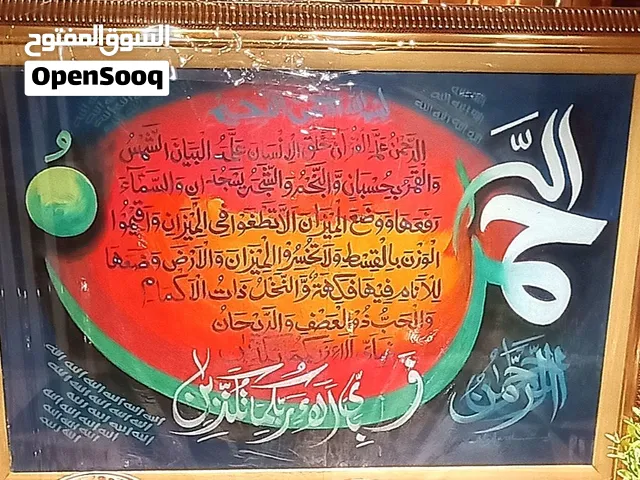 السوق المفتوح
OpenSooq
الرحمن
الرحمن علم القرآن خلق الإنسان علمه البيان الشمس
والقمر بحسبان والنجم والشجر يسجدان والسماء
رفعها ووضع الميزان الا تطغوا في الميزان واقيموا
الوزن بالقسط ولا تخسروا الميزان والارض وضعها
للأنام فيها فاكهة والنخل ذات الاكمام
والحب ذو العصف والريحان
فبأي آلاء ربكما تكذبان
الرحمن
الله الله الله الله الله